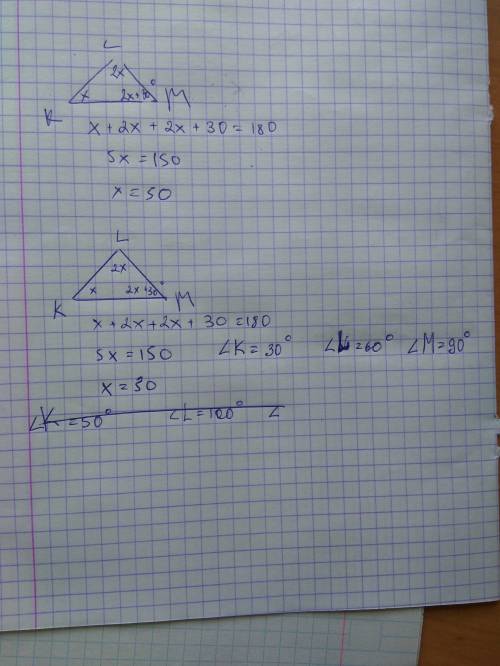 L
2x
x 2x+30°
K M
x+2x+2x+30=180
5x=150
x=50
L
2x
x 2x+30°
K M
x+2x+2x+30=180
5x=150 ∠K=30° ∠L=60° ∠M=90°
x=30
∠K=50° ∠L=100° ∠